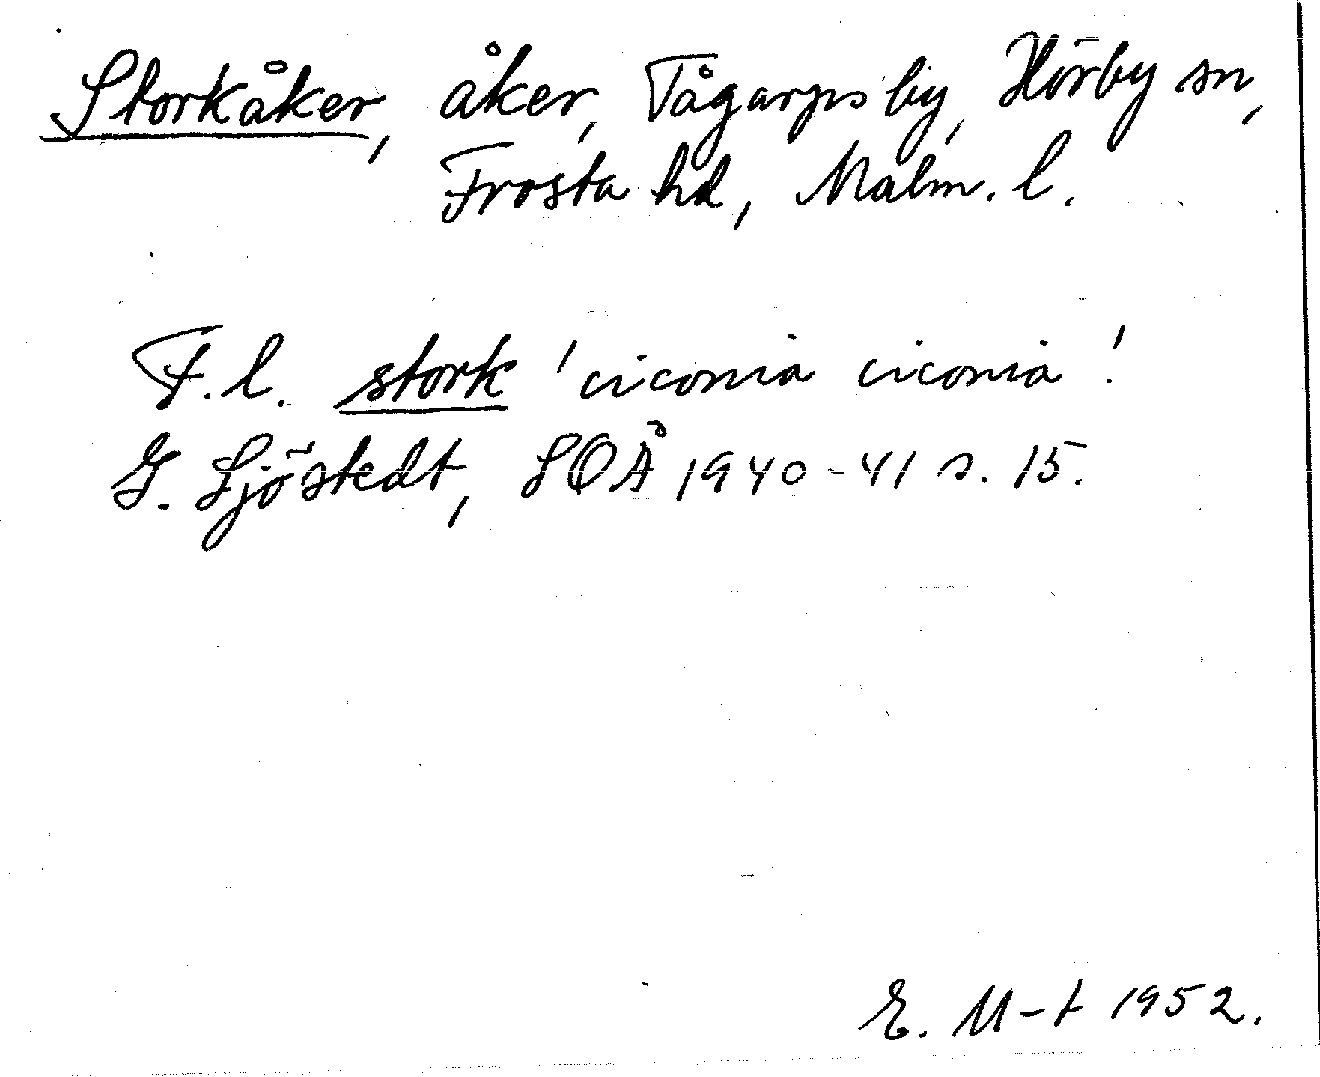 Storkåker, åker, Tågarps by, Hörby sn,
Frosta hd, Malm. l.
F.l. stork 'ciconia ciconia'.
G. Sjöstedt, SOÅ 1940-41 s. 15.
E. M-t 1952.